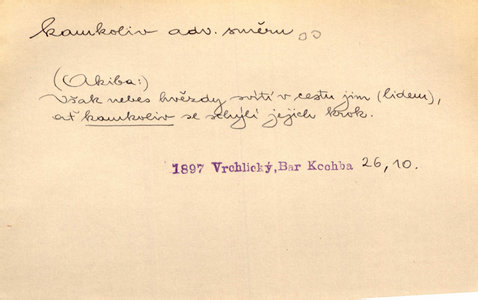 kamkoliv adv. směru
(Akiba:)
Však nebes hvězdy svítí v cestu jim (lidem),
ať kamkoliv se schýlí jejich krok.
1897 Vrchlický, Bar Kochba 26, 10.